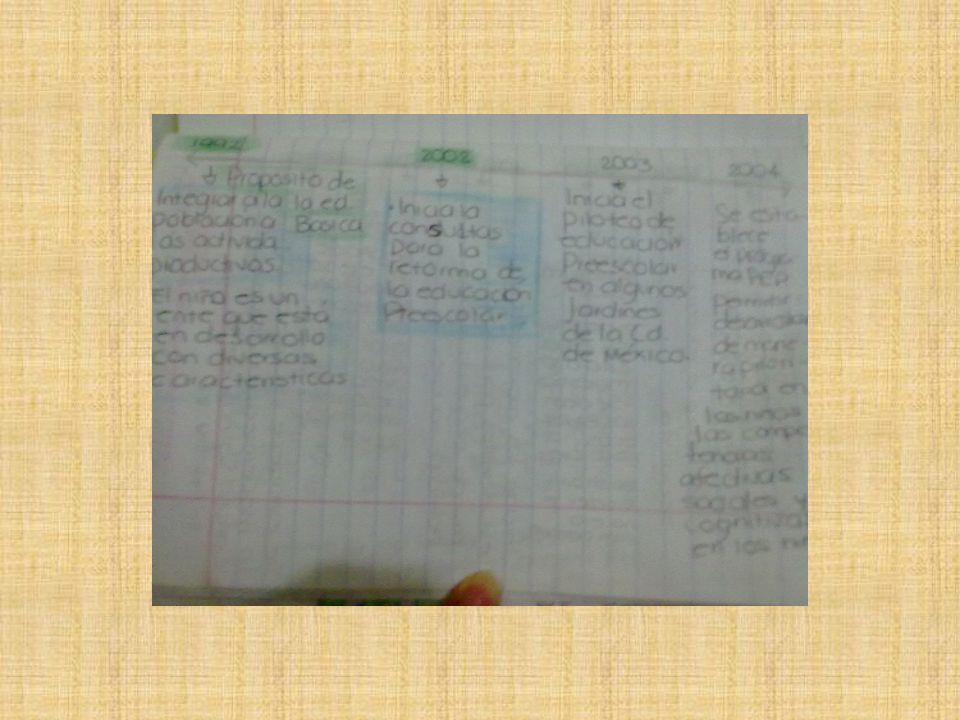 1992
Proposito de
Integrar a la la ed
población a Basica
as activida
productivas
El niño es un
ente que está
en desarrollo
con diversas
características
2002
• Inicia la
consultas
para la
reforma de
la educación
Preescolar
2003
Inicia el
piloteo de
educación
Preescolar
en algunos
Jardines
de la Cd
de México.
2004
Se esta
blece
el progra
ma PEP
permitir
desarrollar
de mane
ra priori
taria en
los niños
las compe
tencias
afectivas
sociales y
cognitivas
en los ni